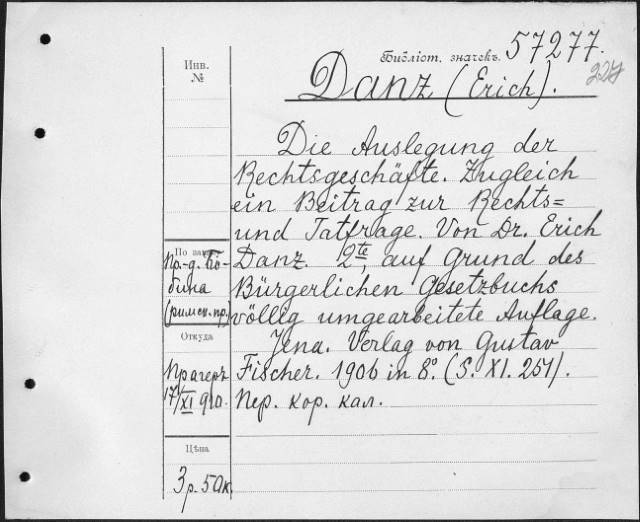 Библіот. значекъ 57277.
227
Инв.
№
Danz (Erich).
Die Auslegung der
Rechtsgeschäfte. Zugleich
ein Beitrag zur Rechts=
und Tatfrage. Von Dr. Erich
Danz. 2te, auf Grund des
Bürgerlichen Gesetzbuchs
völlig umgearbeitete Auflage.
Jena. Verlag von Gustav
Fischer. 1906 in 8º. (S. XI. 251).
Пер. кор. кал.
По
Пр.-д. Бо-
бина
(римск. пр.)
Откуда
Прагеръ
17/XI 910.
Цѣна
3 р. 50 к.